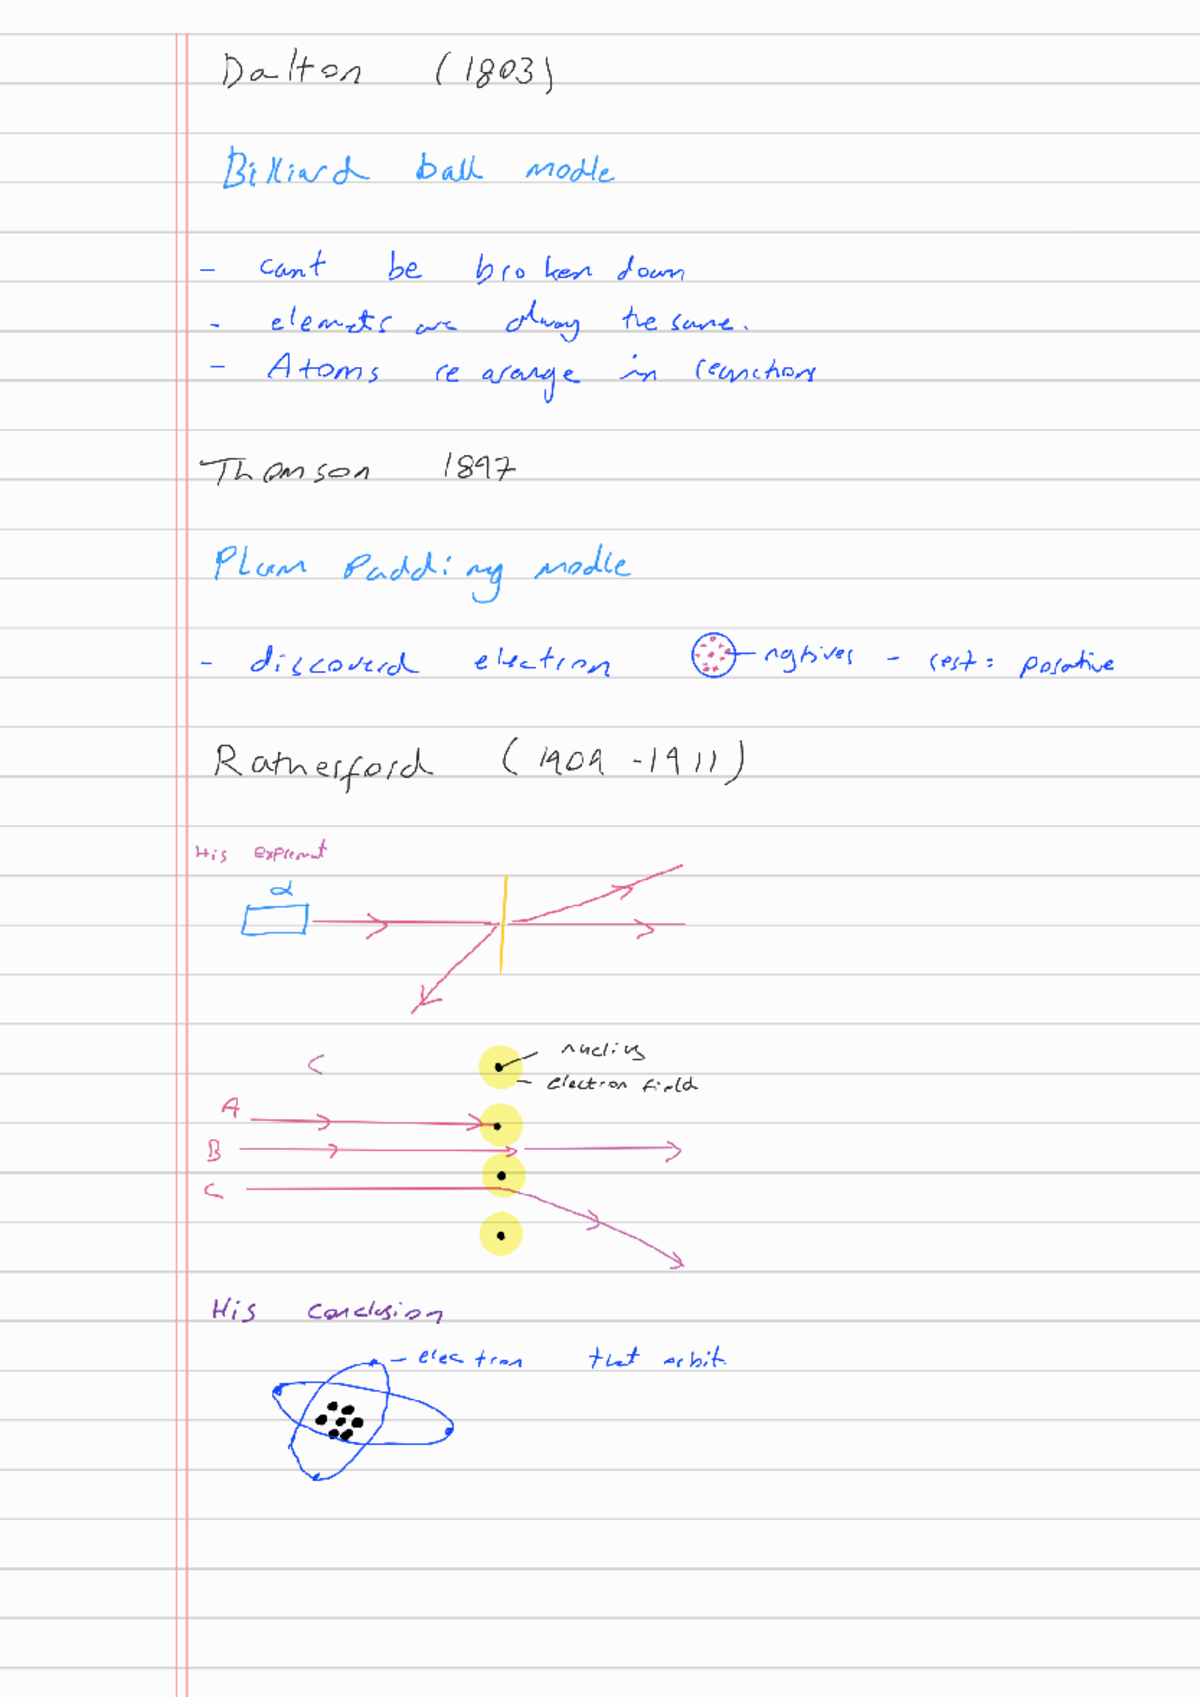 Dalton (1803)
Billiard ball modle
- cant be broken down
- elemets are alway the same.
- Atoms re arange in reactions
Thomson 1897
Plum Padding modle
- discoverd electron
ngtives - rest: posative
Ratherford (1909 - 1911)
His expremnt
α
C
nuclius
electron field
A
B
C
His conclusion
electron that orbit.